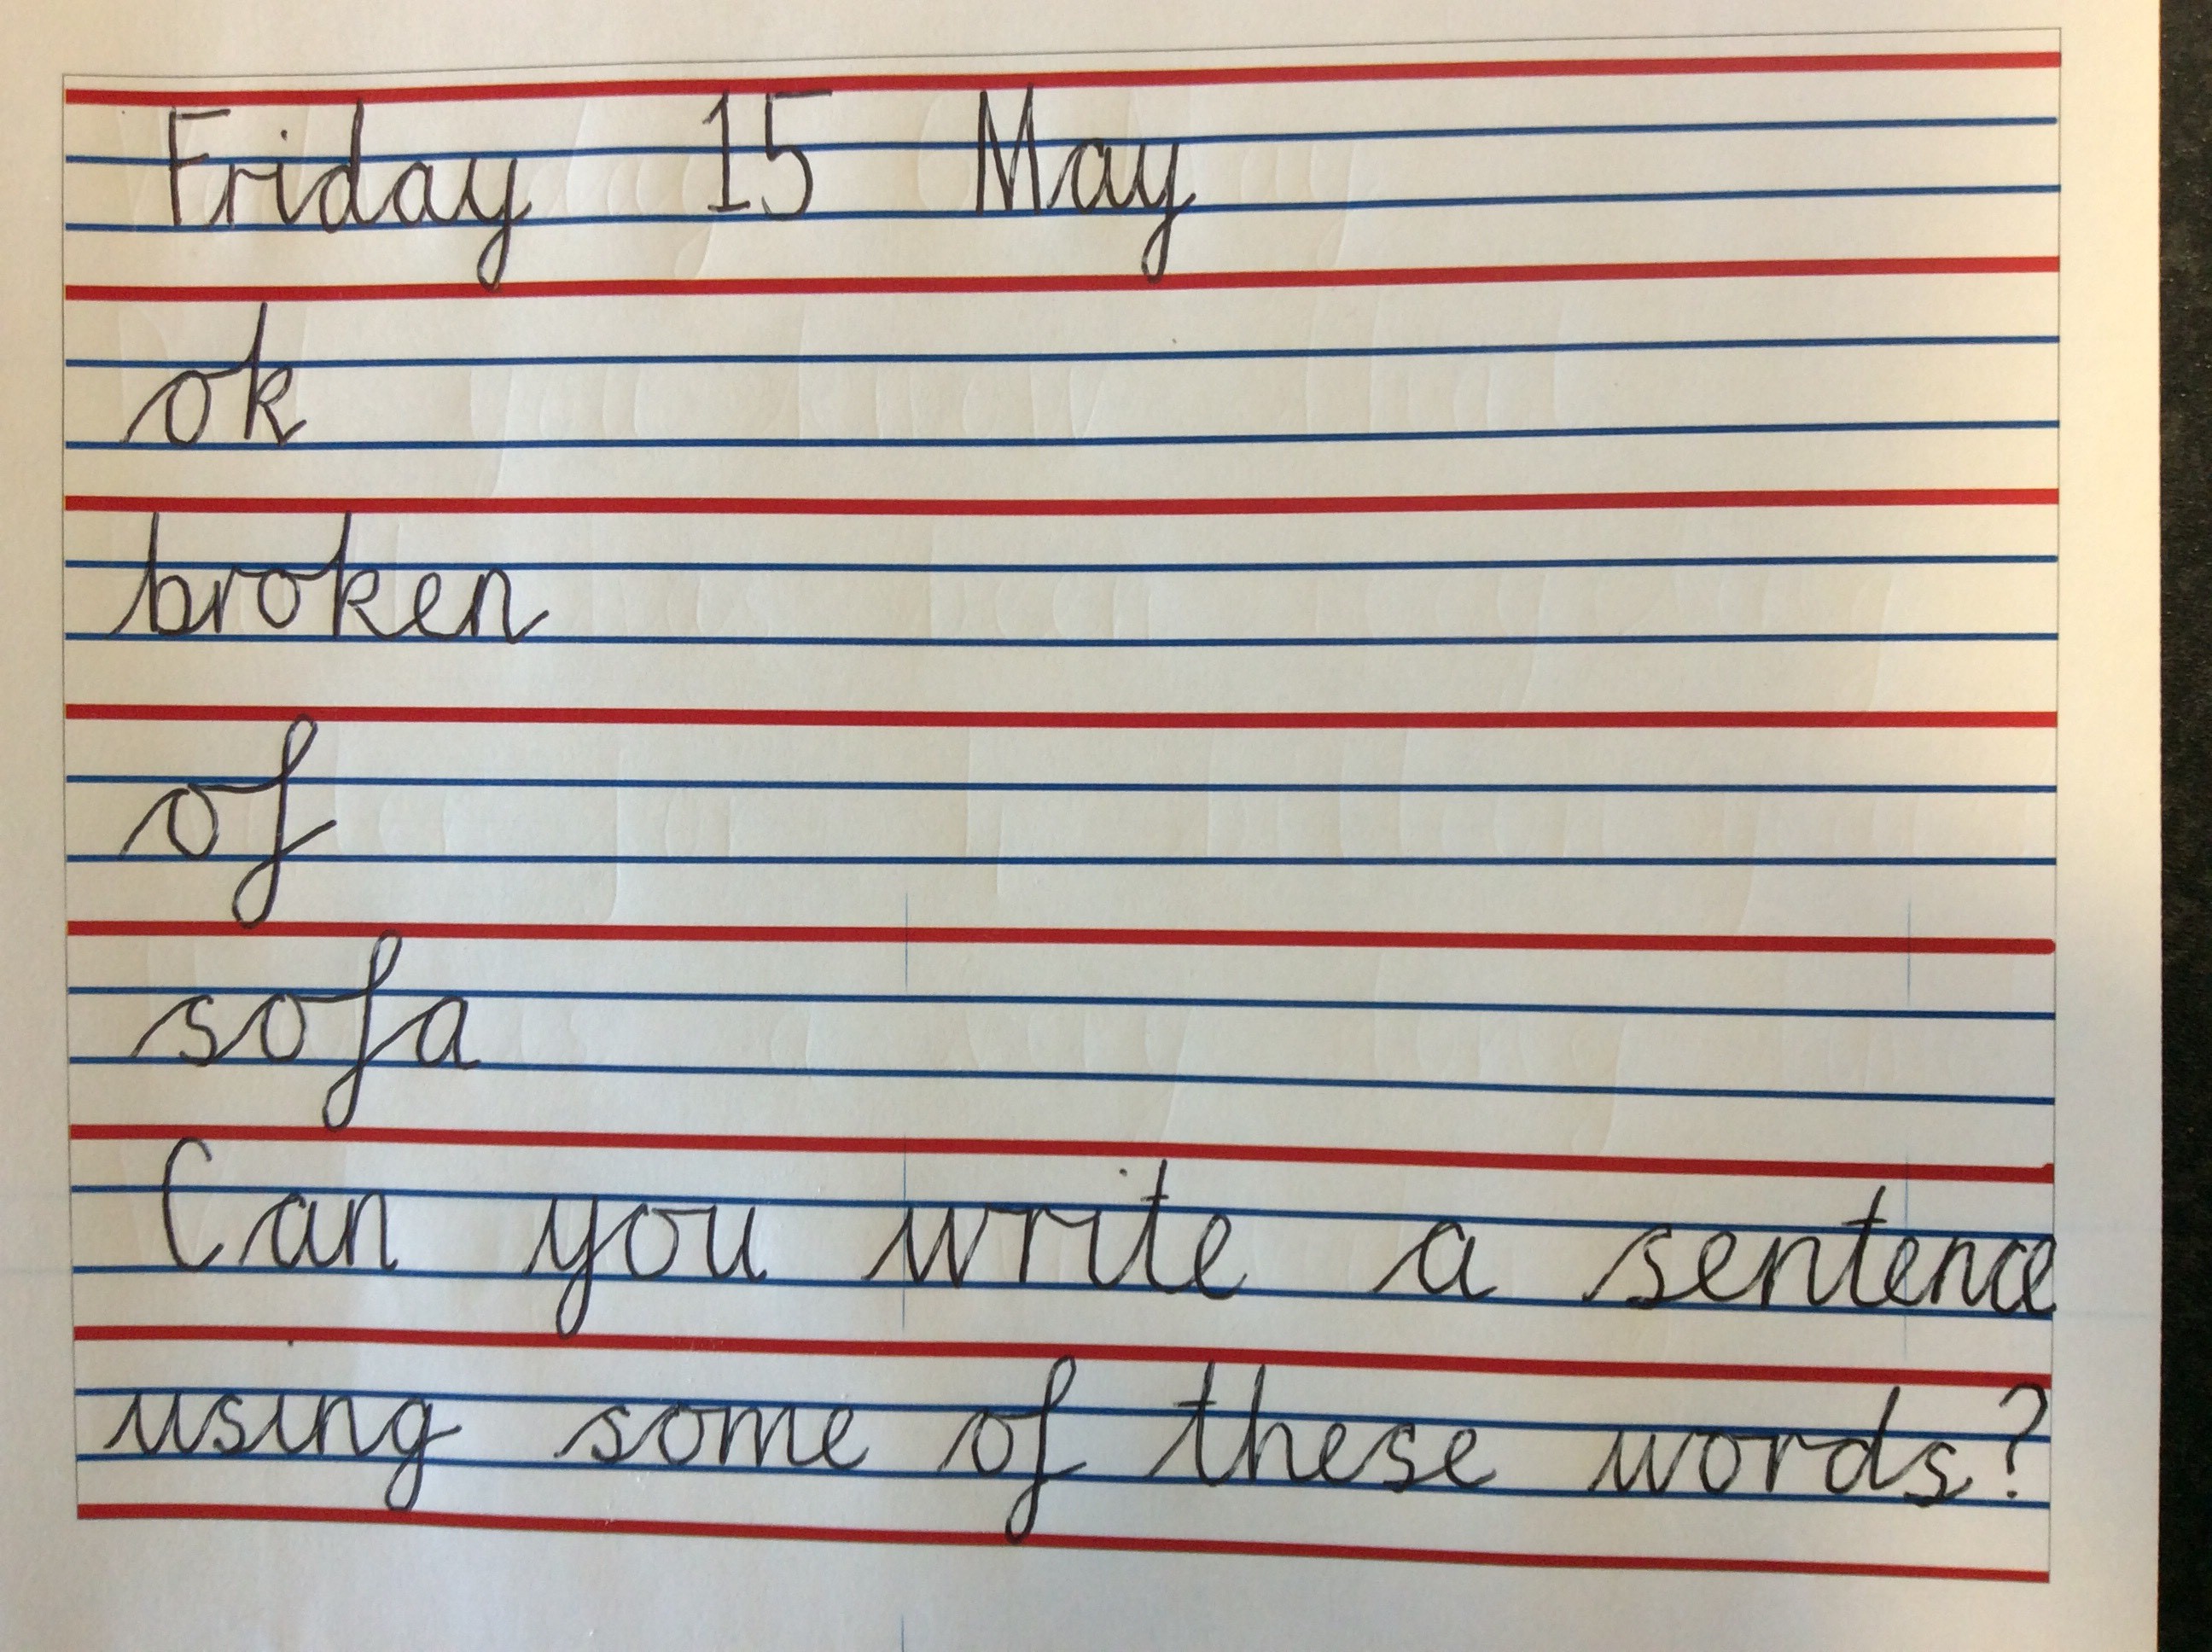 Friday 15 May
ok
broken
of
sofa
Can you write a sentence
using some of these words?